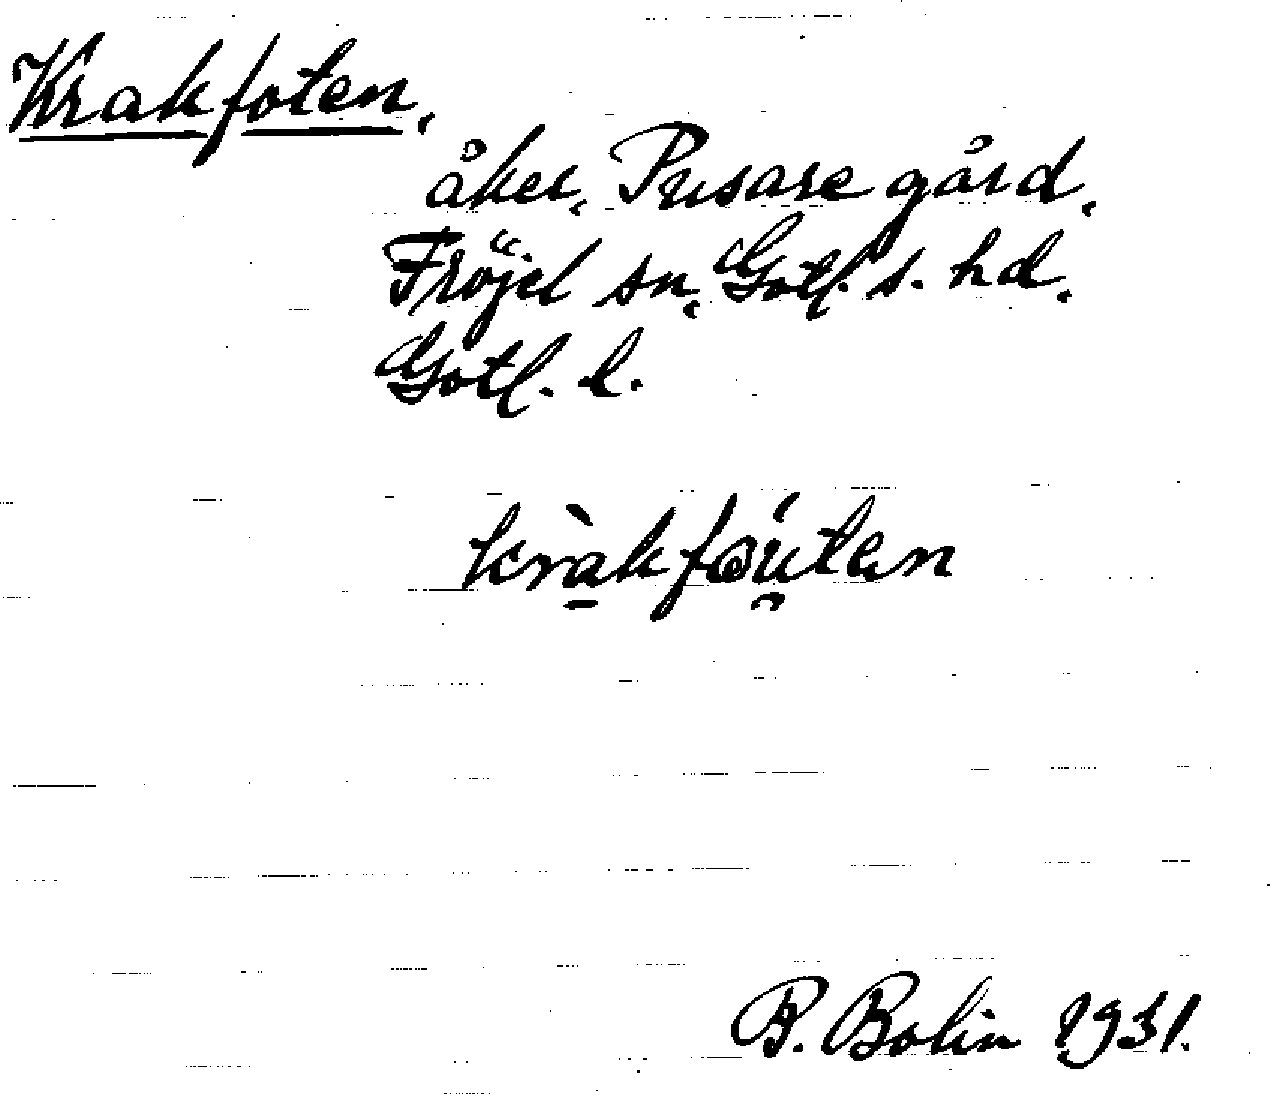 Krakfoten.
åker, Pusare gård.
Fröjel sn, Gotl. s. hd.
Gotl. l.
kràkfǝú̯tǝn
B. Bolin 1931.